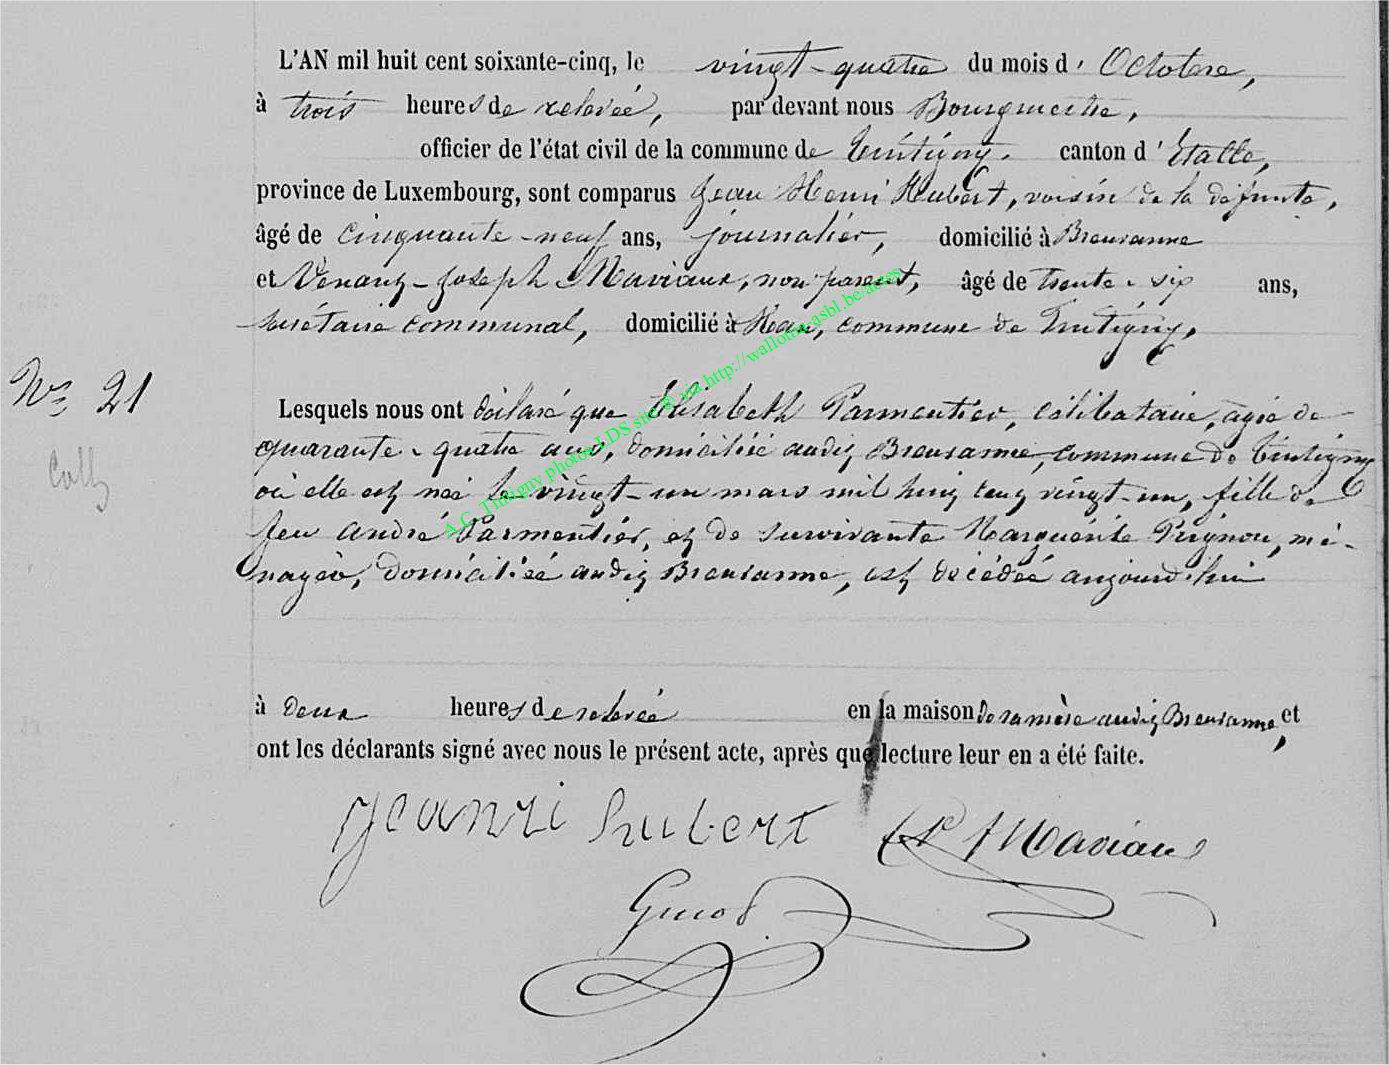 L'AN mil huit cent soixante-cinq, le vingt-quatre du mois d' Octobre,
à trois heures de relevée, par devant nous Bourgmestre,
officier de l'état civil de la commune de Tintigny, canton d' Etalle,
province de Luxembourg, sont comparus Jean Henri Hubert, voisin de la défunte,
âgé de cinquante-neuf ans, journalier, domicilié à Breuvanne
et Venant-Joseph Maviaux, non parent, âgé de trente-six ans,
secrétaire communal, domicilié à Han, commune de Tintigny,
N° 21
Lesquels nous ont déclaré que Elisabeth Parmentier, célibataire, agée de
Coll
quarante-quatre ans, domiciliée audit Breuvanne, commune de Tintigny
où elle est née le vingt-un mars mil huit cent vingt-un, fille de
feu André Parmentier, et de survivante Marguerite Pirignon, mé-
nagère, domiciliée audit Breuvanne, est décédée aujourd'hui
à deux heures de relevée en la maison de sa mère audit Breuvanne, et
ont les déclarants signé avec nous le présent acte, après que lecture leur en a été faite.
jeanri hubert Maviaux
A.C. Tintigny photos LDS site © via http://wallonia-asbl.be/actes